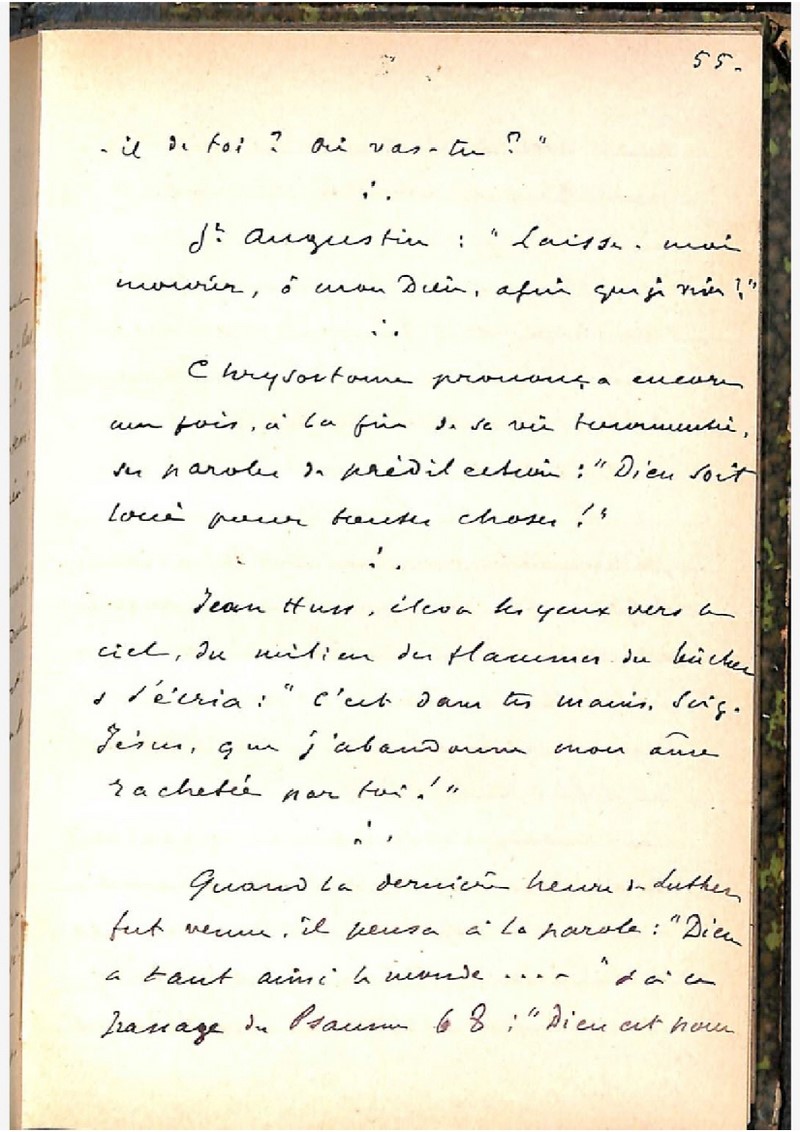 55.
-il de toi ? Où vas-tu ?"
St Augustin : "Laisse-moi
mourir, ô mon Dieu, afin que je vive !"
Chrysostome prononça encore
une fois, à la fin de sa vie tourmentée,
ses paroles de prédilection : "Dieu soit
loué pour toutes choses !"
Jean Huss, éleva les yeux vers le
ciel, du milieu des flammes du bûcher
& s'écria : "C'est dans tes mains, Seig.
Jésus, que j'abandonne mon âme
rachetée par toi !"
Quand la dernière heure de Luther
fut venue, il pensa à la parole : "Dieu
a tant aimé le monde ...." & à ce
passage du Psaume 68 : "Dieu est pour